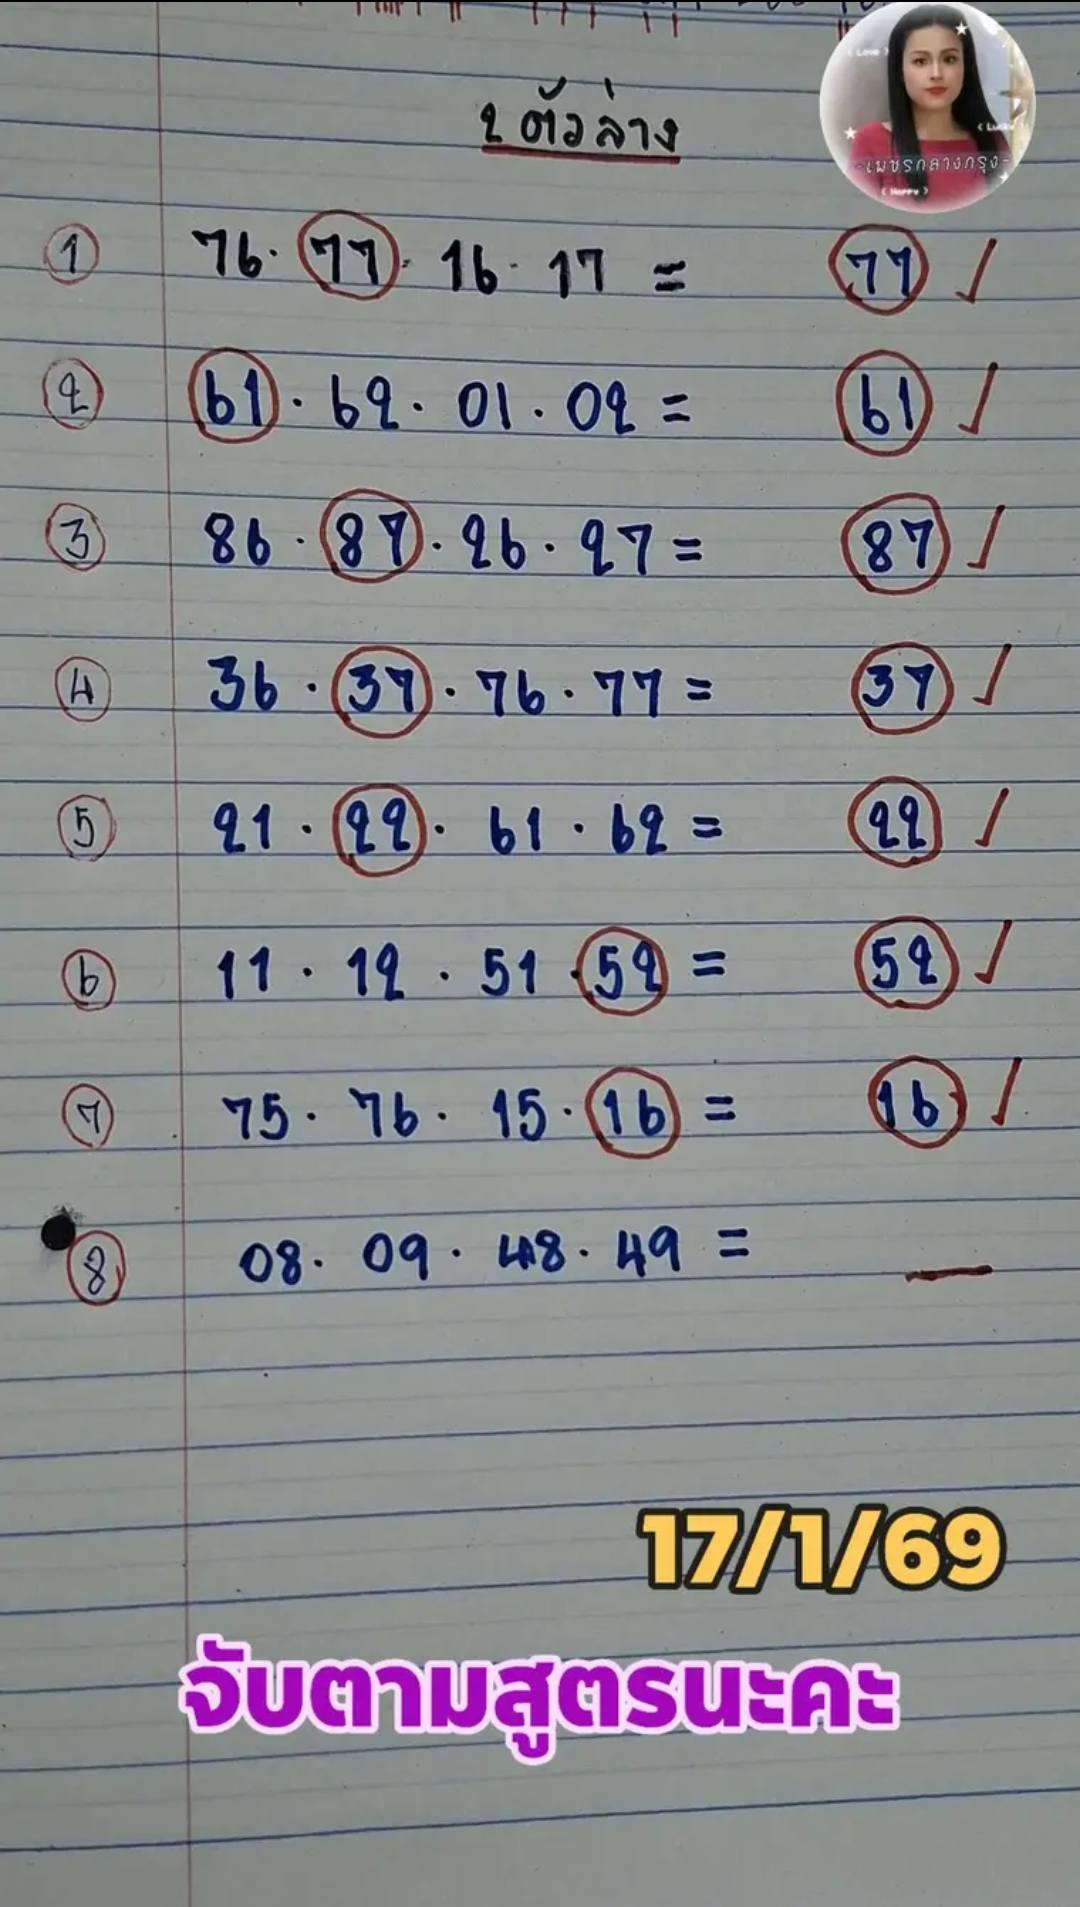 2 ตัวล่าง
< Love >
< Lucky
-เพชรกลางกรุง-
< Happy >
1 76. 77. 16. 17 = 77 ✓
2 61. 62. 01. 02 = 61 ✓
3 86. 87. 26. 27 = 87 ✓
4 36. 37. 76. 77 = 37 ✓
5 21. 22. 61. 62 = 22 ✓
6 11. 12. 51. 52 = 52 ✓
7 75. 76. 15. 16 = 16 ✓
8 08. 09. 48. 49 = _
17/1/69
จับตามสูตรนะคะ